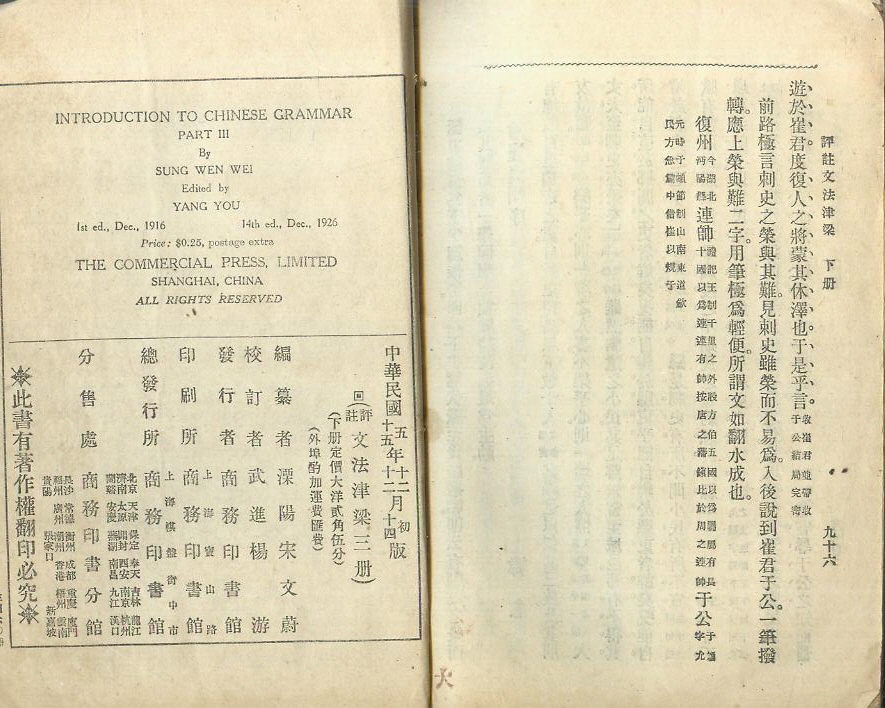 評註文法津梁 下册
九十六
遊於崔君、度復人之將蒙其休澤也。于是乎言。收崔君並帶收于公結局完密
前路極言刺史之榮與其難。見刺史雖榮而不易爲。入後說到崔君于公。一筆撥
轉。應上榮與難二字。用筆極爲輕便。所謂文如翻水成也。
復州今湖北沔陽縣連帥禮記王制千里之外設方伯五國以爲屬屬有長十國以爲連連有帥按唐之藩鎭比於周之連帥于公于頔字允
元時于頔節制山南東道歛民方急篇中借崔以規于
INTRODUCTION TO CHINESE GRAMMAR
PART III
By
SUNG WEN WEI
Edited by
YANG YOU
1st ed., Dec., 1916 14th ed., Dec., 1926
Price: $0.25, postage extra
THE COMMERCIAL PRESS, LIMITED
SHANGHAI, CHINA
ALL RIGHTS RESERVED
中華民國五年十二月初版
十五年十二月十四版
回(評註文法津梁三册)
(下册定價大洋貳角伍分)
(外埠酌加運費匯費)
編纂者 溧陽宋文蔚
校訂者 武進楊游
發行者 商務印書館
印刷所 上海寶山路 商務印書館
總發行所 上海棋盤街中市 商務印書館
分售處 商務印書分館
北京 天津 保定 奉天 吉林 龍江
濟南 太原 開封 西安 南京 杭州
蘭谿 安慶 蕪湖 南昌 九江 漢口
長沙 常德 衡州 成都 重慶 廈門
福州 廣州 潮州 香港 梧州 雲南
貴陽 張家口 新嘉坡
此書有著作權翻印必究